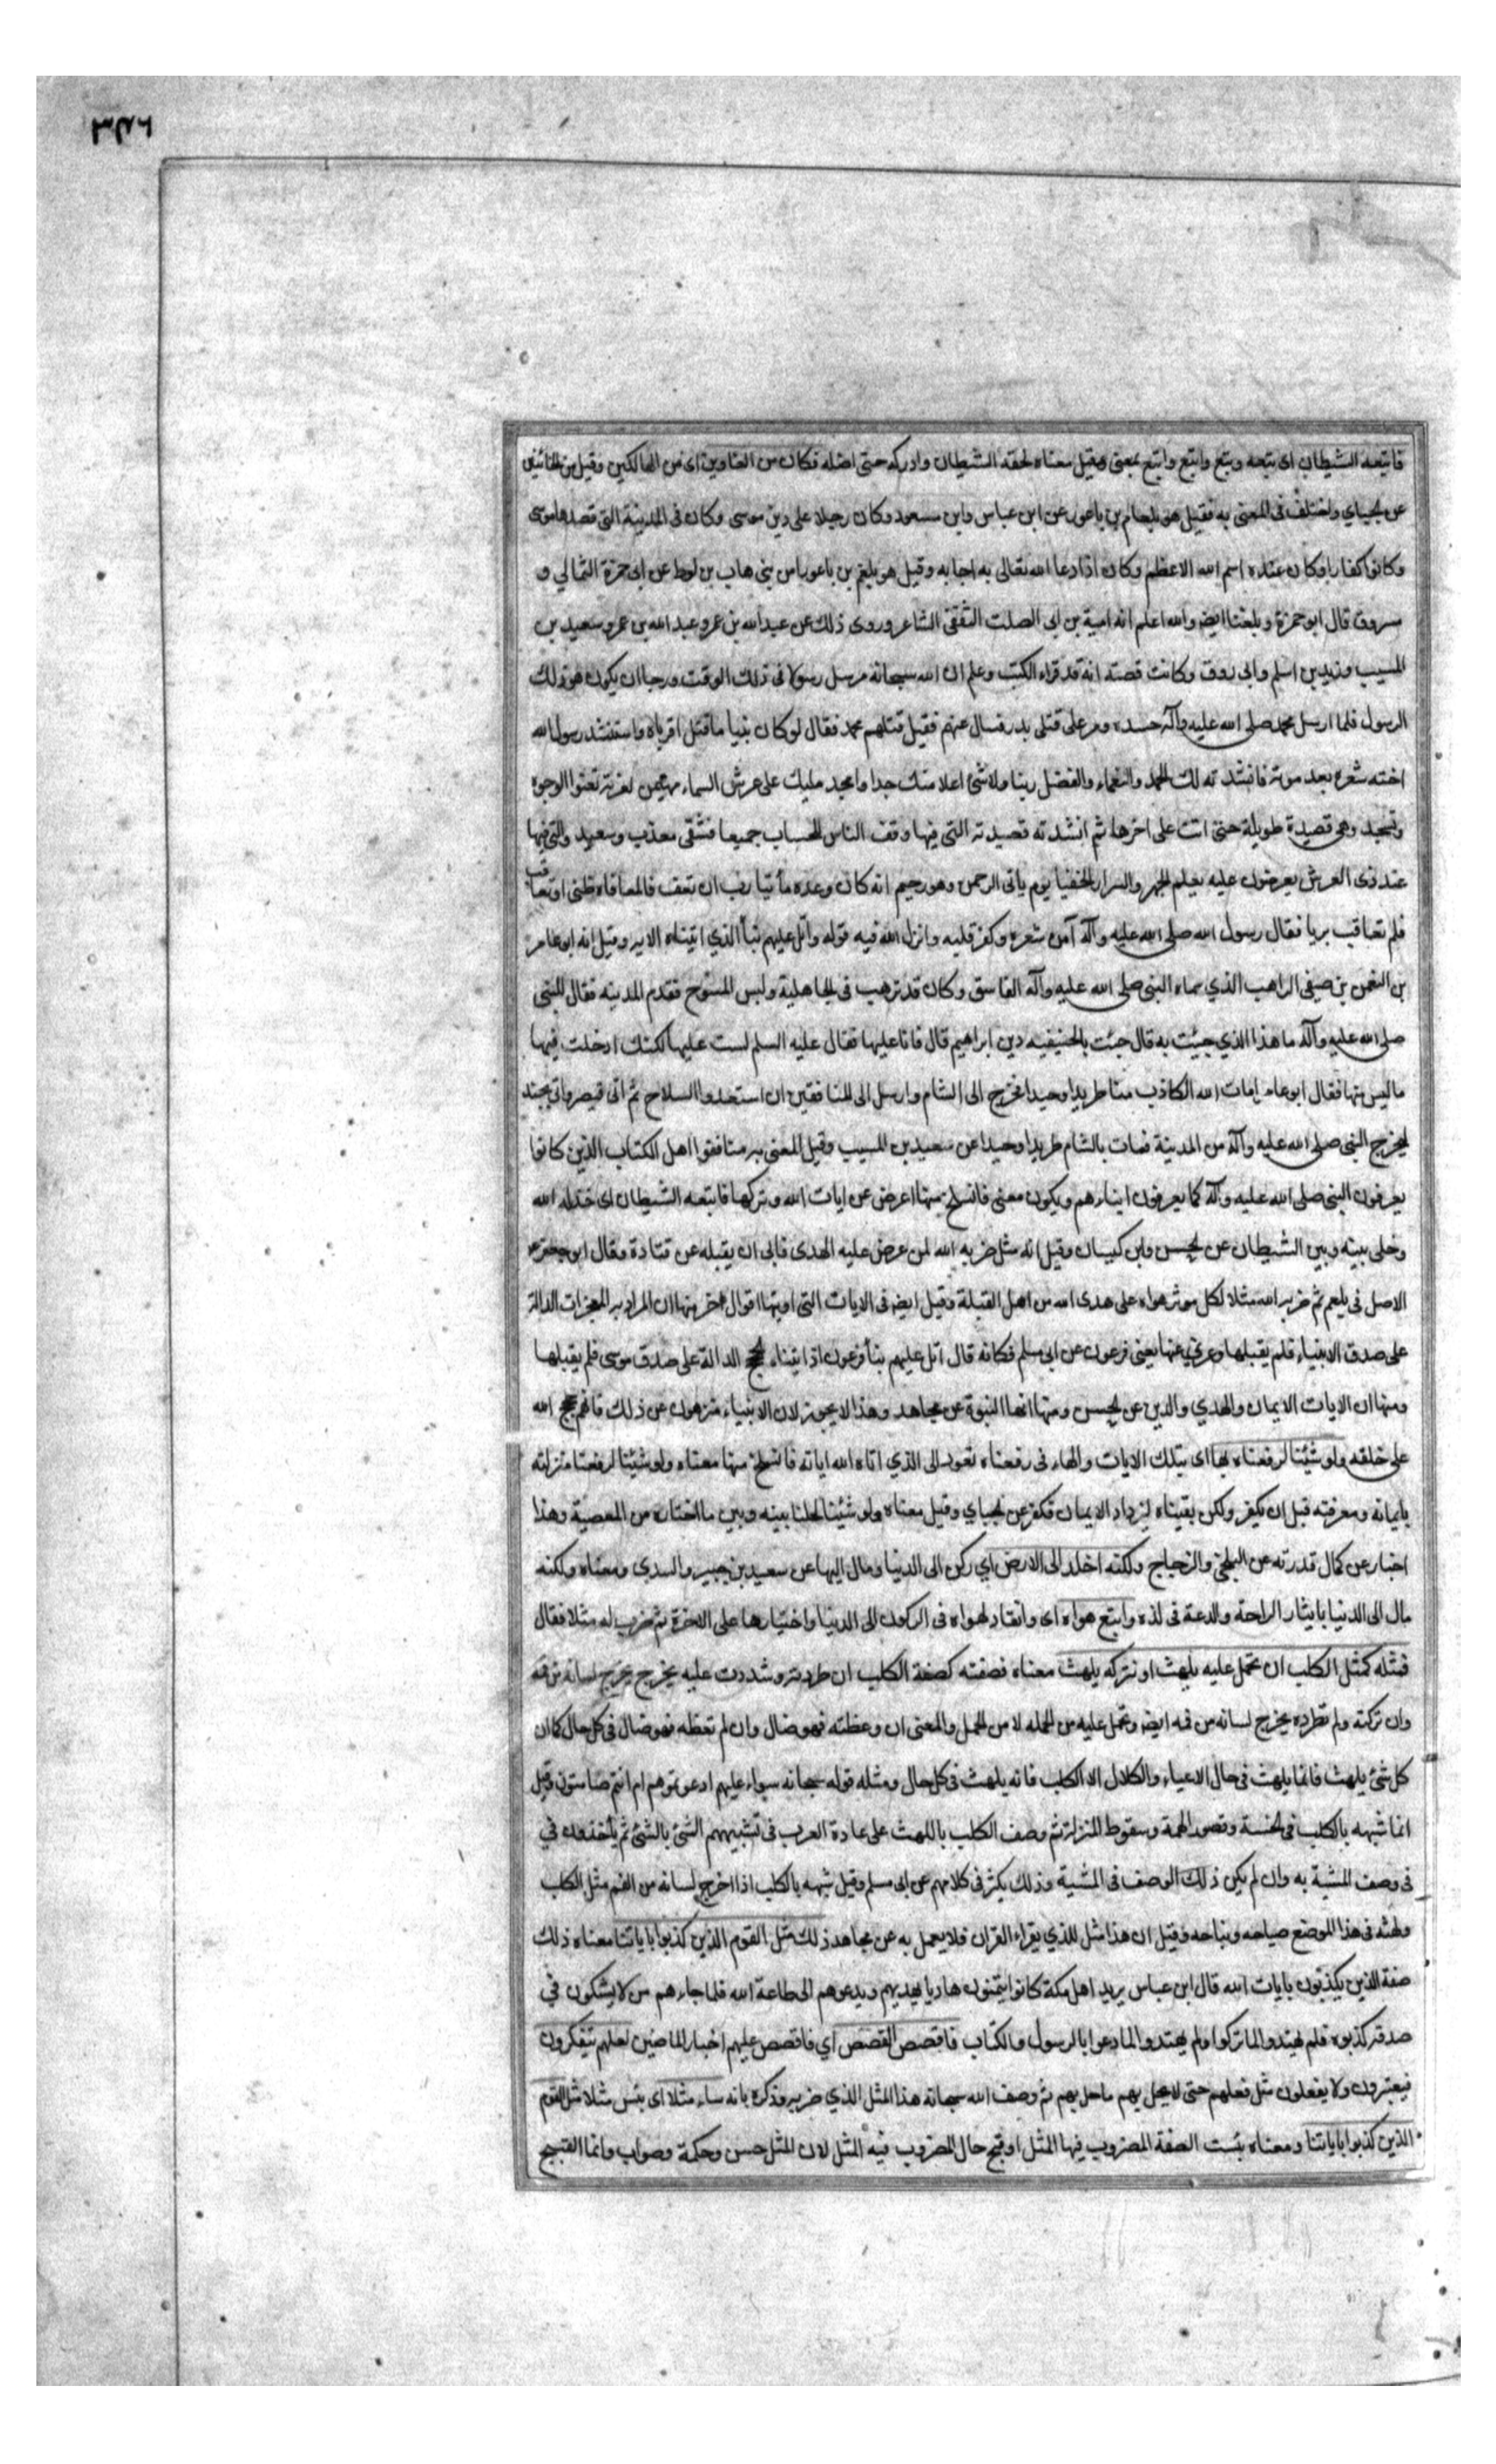 فاتبعه الشيطان اى يتبعه وبتع واتبع واتبع بمعنى وقيل معناه لحقه الشيطان وادركه حتى اضله فكان من الغاوين اى من الهالكين وقيل من الخائبين
عن الجبايي واختلف في المعنى به فقيل هو بلعام بن باعور عن ابن عباس وابن مسعود وكان رجلا على دين موسى وكان في المدينة التي قصدها موسى
وكانوا كفارا وكان عنده اسم الله الاعظم وكان اذا دعا الله تعالى به اجابه وقيل هو بلعم بن باعورا من بني هاب بن لوط عن ابى حمزة الثمالي و
مسروق قال ابو حمزة وبلغنا ايضا والله اعلم انه امية بن ابى الصلت الثقفى الشاعر وروى ذلك عن عبدالله بن عمرو عبد الله بن عمر وسعيد بن
المسيب وزيد بن اسلم وابى روق وكانت قصته انه قد قراء الكتب وعلم ان الله سبحانه مرسل رسولا في ذلك الوقت ورجا ان يكون هو ذلك
الرسول فلما ارسل محمد صلى الله عليه وآله حسده ومر على قتلى بدر فسال عنهم فقيل قتلهم محمد فقال لو كان نبيا ما قتل اقرباه واستنشد رسول الله
اخته شعره بعد موته فانشد ته لك الحمد والنعماء والفضل ربنا ولا شئ اعلا منك جدا وامجد مليك على عرش السماء مهيمن لعزته تعنوا الوجوه
وتسجد وهى قصيدة طويلة حتى اتت على اخرها ثم انشدته قصيدته التي فيها وقف الناس للحساب جميعا فشقى معذب وسعيد والتي فيها
عند ذى العرش يعرضون عليه يعلم الجهر والسرار الخفيا يوم ياتى الرحمن وهو رحيم انه كان وعده مأتيا رب ان تعف فالمعافاه ظنى او تعاقب
فلم تعاقب بريا فقال رسول الله صلى الله عليه وآله آمن شعره وكفر قلبه وانزل الله فيه قوله واتل عليهم نبأ الذي اتيناه الايه وقيل انه ابو عامر
بن النعمن بن صيفى الراهب الذي سماه النبى صلى الله عليه وآله الفاسق وكان قد ترهب في الجاهلية ولبس المسوح فقدم المدينه فقال للنبى
صلى الله عليه وآله ما هذا الذي جيئت به قال جئت بالحنيفيه دين ابراهيم قال فانا عليها فقال عليه السلم لست عليها لكنك ادخلت فيها
ما ليس منها فقال ابو عامر امات الله الكاذب منا طريدا وحيدا فخرج الى الشام وارسل الى المنافقين ان استعدوا السلاح ثم اتى قيصر واتى بجند
ليخرج النبى صلى الله عليه وآله من المدينة فمات بالشام طريدا وحيدا عن سعيد بن المسيب وقيل المعنى به منافقوا اهل الكتاب الذين كانوا
يعرفون النبى صلى الله عليه وآله كما يعرفون ابناءهم ويكون معنى فانسلخ منها اعرض عن ايات الله وتركها فاتبعه الشيطان اى خذله الله
وخلى بينه وبين الشيطان عن الحسن وابن كيسان وقيل انه مثل ضربه الله لمن عرض عليه الهدى فابى ان يقبله عن قتادة وقال ابو جعفر
الاصل في بلعم ثم ضربه الله مثلا لكل موثر هواه على هدى الله من اهل القبلة وقيل ايضا في الايات التي اوتيها اقوال اخر منها ان المراد به المعجزات الدالة
على صدق الانبياء فلم يقبلها وعرى عنها يعنى فرعون عن ابى مسلم فكانه قال اتل عليهم نبأ فرعون اذ اتيناه الحجج الدالة على صدق موسى فلم يقبلها
ومنها ان الايات الايمان والهدي والدين عن الحسن ومنها انها النبوة عن مجاهد وهذا لا يجوز لان الانبياء منزهون عن ذلك فانهم حجج الله
على خلقه ولو شئنا لرفعناه بها اى بتلك الايات والهاء فى رفعناه تعود الى الذي اتاه الله اياته فانسلخ منها معناه ولو شئنا لرفعنا منزلته
بايمانه ومعرفته قبل ان يكفر ولكن بقيناه ليزداد الايمان فكفر عن الجبايي وقيل معناه ولو شئنا لحلنا بينه وبين ما اختاره من المعصية وهذا
اخبار عن كمال قدرته عن البلخى والزجاج ولكنه اخلد الى الارض اي ركن الى الدنيا ومال اليها عن سعيد بن جبير والسدى ومعناه ولكنه
مال الى الدنيا بايثار الراحة والدعة فى لذه واتبع هواه اى وانقاد لهواه فى الركون الى الدنيا واختيارها على الاخرة ثم ضرب له مثلا فقال
فمثله كمثل الكلب ان تحمل عليه يلهث او تتركه يلهث معناه فصفته كصفة الكلب ان طردته وشددت عليه يخرج يخرج لسانه من فمه
وان تركته ولم تطرده يخرج لسانه من فمه ايضا وتحمل عليه من الحمله لا من الحمل والمعنى ان وعظته فهو ضال وان لم تعظه فهو ضال فى كل حال كما ان
كل شئ يلهث فانما يلهث فى حال الاعياء والكلال الا الكلب فانه يلهث فى كل حال ومثله قوله سبحانه سواء عليهم ادعوتموهم ام انتم صامتون وقيل
انما شبهه بالكلب في الخسة وقصور الهمة وسقوط المنزلة ثم وصف الكلب باللهث على عادة العرب فى تشبيههم الشئ بالشئ ثم ياخذون في
فى وصف المشبة به وان لم يكن ذلك الوصف فى المشبة وذلك يكثر فى كلامهم عن ابى مسلم وقيل شبهه بالكلب اذا اخرج لسانه من الفم مثل الكلب
ولهثه فى هذا الموضع صياحه ونباحه وقيل ان هذا مثل للذي يقراء القران فلا يعمل به عن مجاهد ذلك مثل القوم الذين كذبوا باياتنا معناه ذلك
صفة الذين يكذبون بايات الله قال ابن عباس يريد اهل مكة كانوا يتمنون هاديا يهديهم ويدعوهم الى طاعة الله فلما جاءهم من لا يشكون في
صدقه كذبوه فلم يهتدوا لما تركوا ولم يهتدوا لما دعوا بالرسول والكتاب فاقصص القصص اي فاقصص عليهم اخبار الماضين لعلهم يتفكرون
فيعتبرون ولا يفعلون مثل فعلهم حتى لا يحل بهم ما حل بهم ثم وصف الله سبحانه هذا المثل الذي ضربه وذكره بانه ساء مثلا اى بئس مثلا مثل القوم
الذين كذبوا باياتنا ومعناه بئست الصفة المضروب فيها المثل او قبح حال المضروب فيه المثل لان المثل حسن وحكمة وصواب وانما القبيح